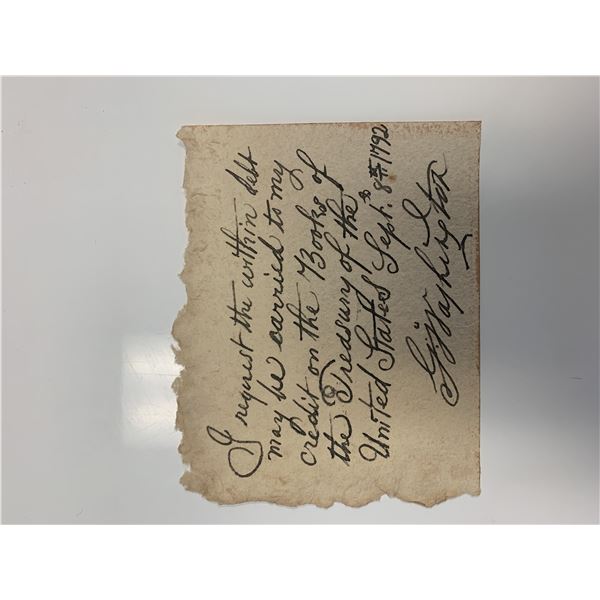 I request the within debt
may be carried to my
credit on the Books of
the Treasury of the
United States Sept. 8th 1792
G Washington